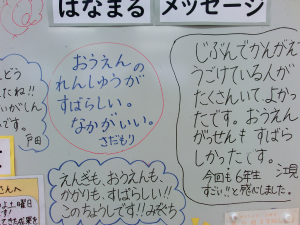 はなまる
メッセージ
どう
たね!!
いがしん
です。
戸田
おうえんの
れんしゅうが
すばらしい。
なかがいい。
さだもり
じぶんでかんがえ
うごけている人が
たくさんいてよかっ
たです。おうえん
がっせんもすばら
しかったです。
今回も6年生
すごい!!と感心しました。
えんぎも、おうえんも、
かかりも、すばらしい!!
このちょうしです!!みぞぐち
さんへ